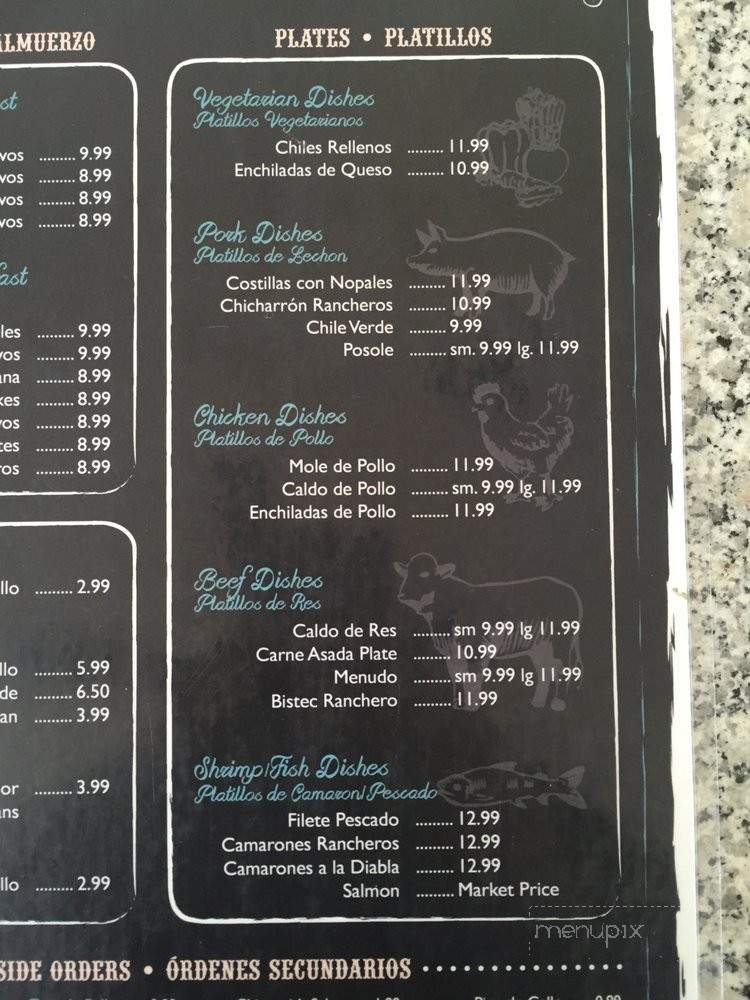 ALMUERZO
9.99
8.99
8.99
8.99
9.99
9.99
8.99
8.99
8.99
8.99
8.99
2.99
5.99
6.50
3.99
3.99
2.99
PLATES • PLATILLOS
Vegetarian Dishes
Platillos Vegetarianos
Chiles Rellenos ........ 11.99
Enchiladas de Queso ........ 10.99
Pork Dishes
Platillos de Lechon
Costillas con Nopales ........ 11.99
Chicharrón Rancheros ........ 10.99
Chile Verde ........ 9.99
Posole ........ sm. 9.99 lg. 11.99
Chicken Dishes
Platillos de Pollo
Mole de Pollo ........ 11.99
Caldo de Pollo ........ sm. 9.99 lg. 11.99
Enchiladas de Pollo ........ 11.99
Beef Dishes
Platillos de Res
Caldo de Res ........ sm 9.99 lg 11.99
Carne Asada Plate ........ 10.99
Menudo ........ sm 9.99 lg 11.99
Bistec Ranchero ........ 11.99
Shrimp/Fish Dishes
Platillos de Camaron/Pescado
Filete Pescado ........ 12.99
Camarones Rancheros ........ 12.99
Camarones a la Diabla ........ 12.99
Salmon ........ Market Price
menupix
SIDE ORDERS • ÓRDENES SECUNDARIOS